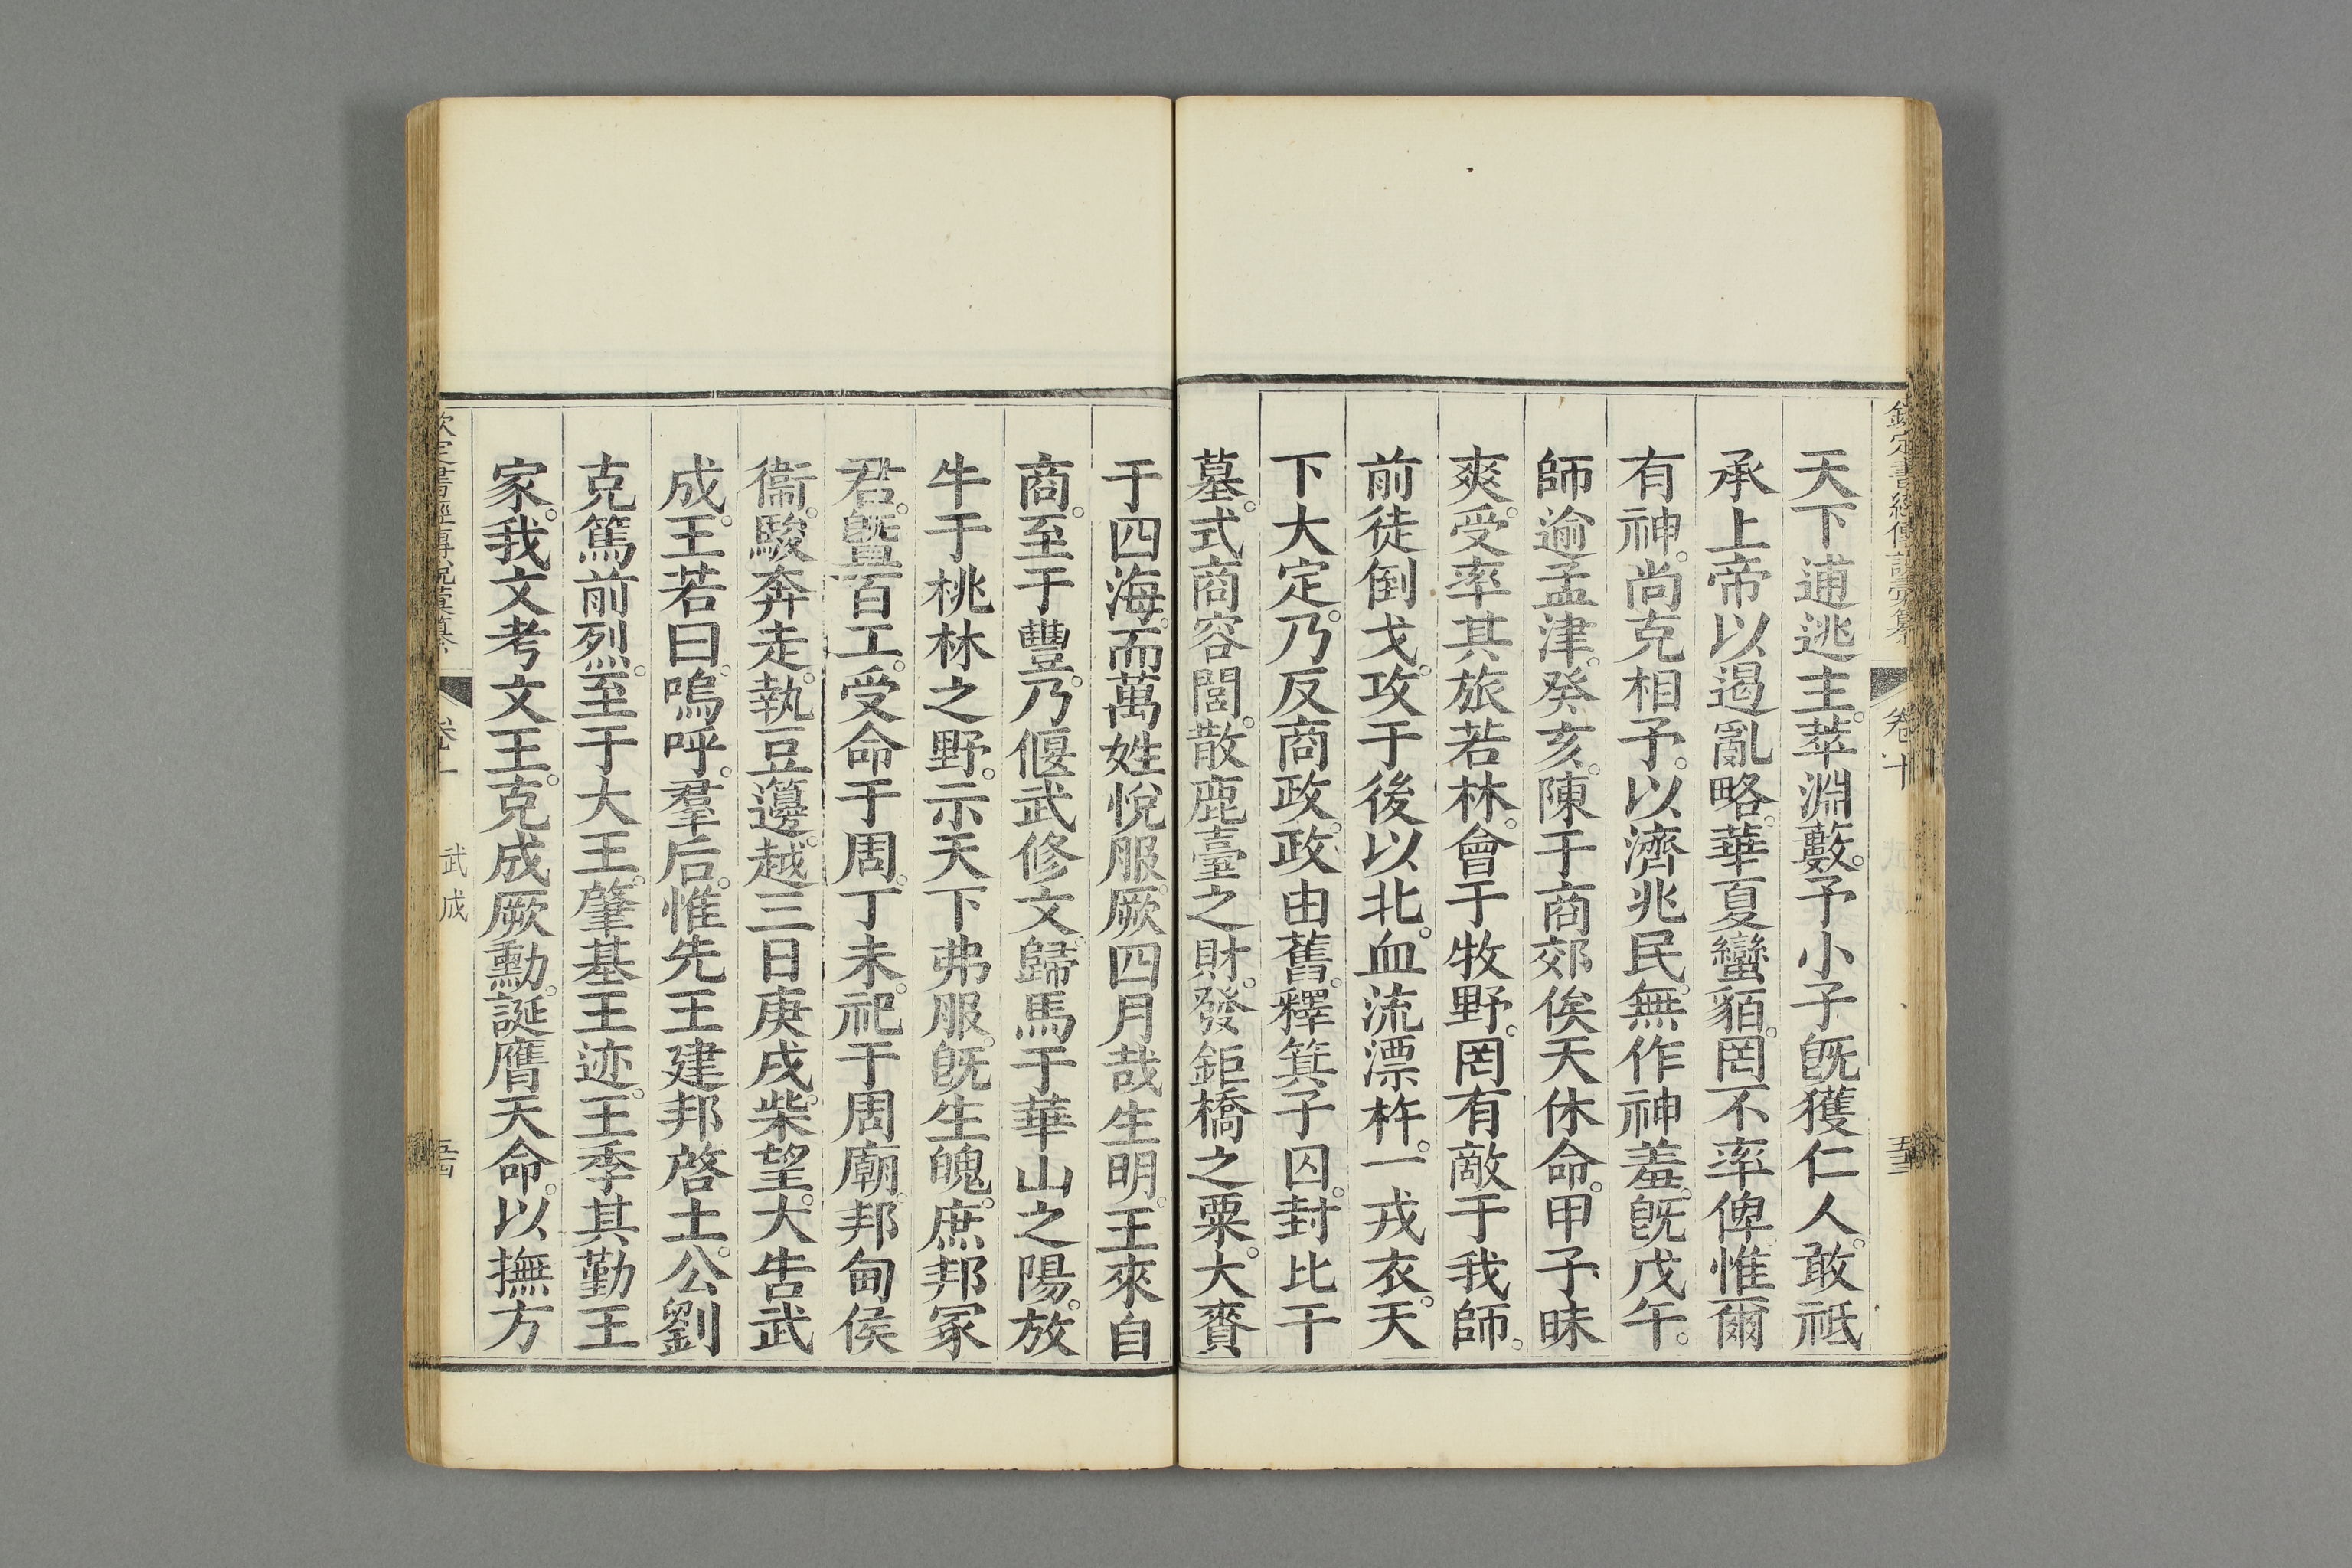 欽定書經傳說彙纂 卷十 五三
天下逋逃主。萃淵藪。予小子旣獲仁人。敢祗
承上帝以遏亂略。華夏蠻貊。罔不率俾惟爾
有神。尚克相予。以濟兆民。無作神羞。旣戊午。
師逾孟津。癸亥。陳于商郊俟天休命。甲子昧
爽。受率其旅若林。會于牧野。罔有敵于我師。
前徒倒戈。攻于後以北。血流漂杵。一戎衣。天
下大定。乃反商政。政由舊。釋箕子囚。封比干
墓。式商容閭。散鹿臺之財。發鉅橋之粟。大賚
于四海。而萬姓悅服。厥四月哉生明。王來自
商。至于豐。乃偃武修文。歸馬于華山之陽。放
牛于桃林之野。示天下弗服。旣生魄。庶邦冢
君。曁百工。受命于周。丁未。祀于周廟。邦甸侯
衞。駿奔走。執豆籩。越三日庚戌。柴望。大告武
成。王若曰。嗚呼。羣后。惟先王建邦啓土。公劉
克篤前烈。至于大王。肇基王迹。王季其勤王
家。我文考文王。克成厥勳。誕膺天命。以撫方
武成 五四